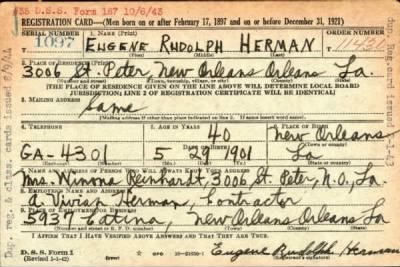 935 D.S.S. Form 167 10/6/43
REGISTRATION CARD—(Men born on or after February 17, 1897 and on or before December 31, 1921)
SERIAL NUMBER
1. NAME (Print)
ORDER NUMBER
1097
EUGENE RUDOLPH HERMAN
11436
2. PLACE OF RESIDENCE (Print)
3006 St. Peter New Orleans Orleans La.
(THE PLACE OF RESIDENCE GIVEN ON THE LINE ABOVE WILL DETERMINE LOCAL BOARD
JURISDICTION; LINE 2 OF REGISTRATION CERTIFICATE WILL BE IDENTICAL)
3. MAILING ADDRESS
Same
[Mailing address if other than place indicated on line 2. If same insert word same]
4. TELEPHONE
5. AGE IN YEARS
6. PLACE OF BIRTH
40
New Orleans
DATE OF BIRTH
(Town or county)
GA-4301
5 - 29 1901
La
(Exchange) (Number)
(Mo.) (Day) (Yr.)
(State or country)
7. NAME AND ADDRESS OF PERSON WHO WILL ALWAYS KNOW YOUR ADDRESS
Mrs. Winona Reinhardt, 3006 St. Peter, N.O., La
8. EMPLOYER'S NAME AND ADDRESS
A Vivian Herman, Contractor
9. PLACE OF EMPLOYMENT OR BUSINESS
5937 New Orleans Orleans La
(Number and street or R. F. D. number) (Town) (County) (State)
I AFFIRM THAT I HAVE VERIFIED ABOVE ANSWERS AND THAT THEY ARE TRUE.
D. S. S. Form 1
(Revised 1-1-42)
GPO 16—21630-1
Eugene Rudolph Herman
Dup. reg. & class. cards issued 8/9/44